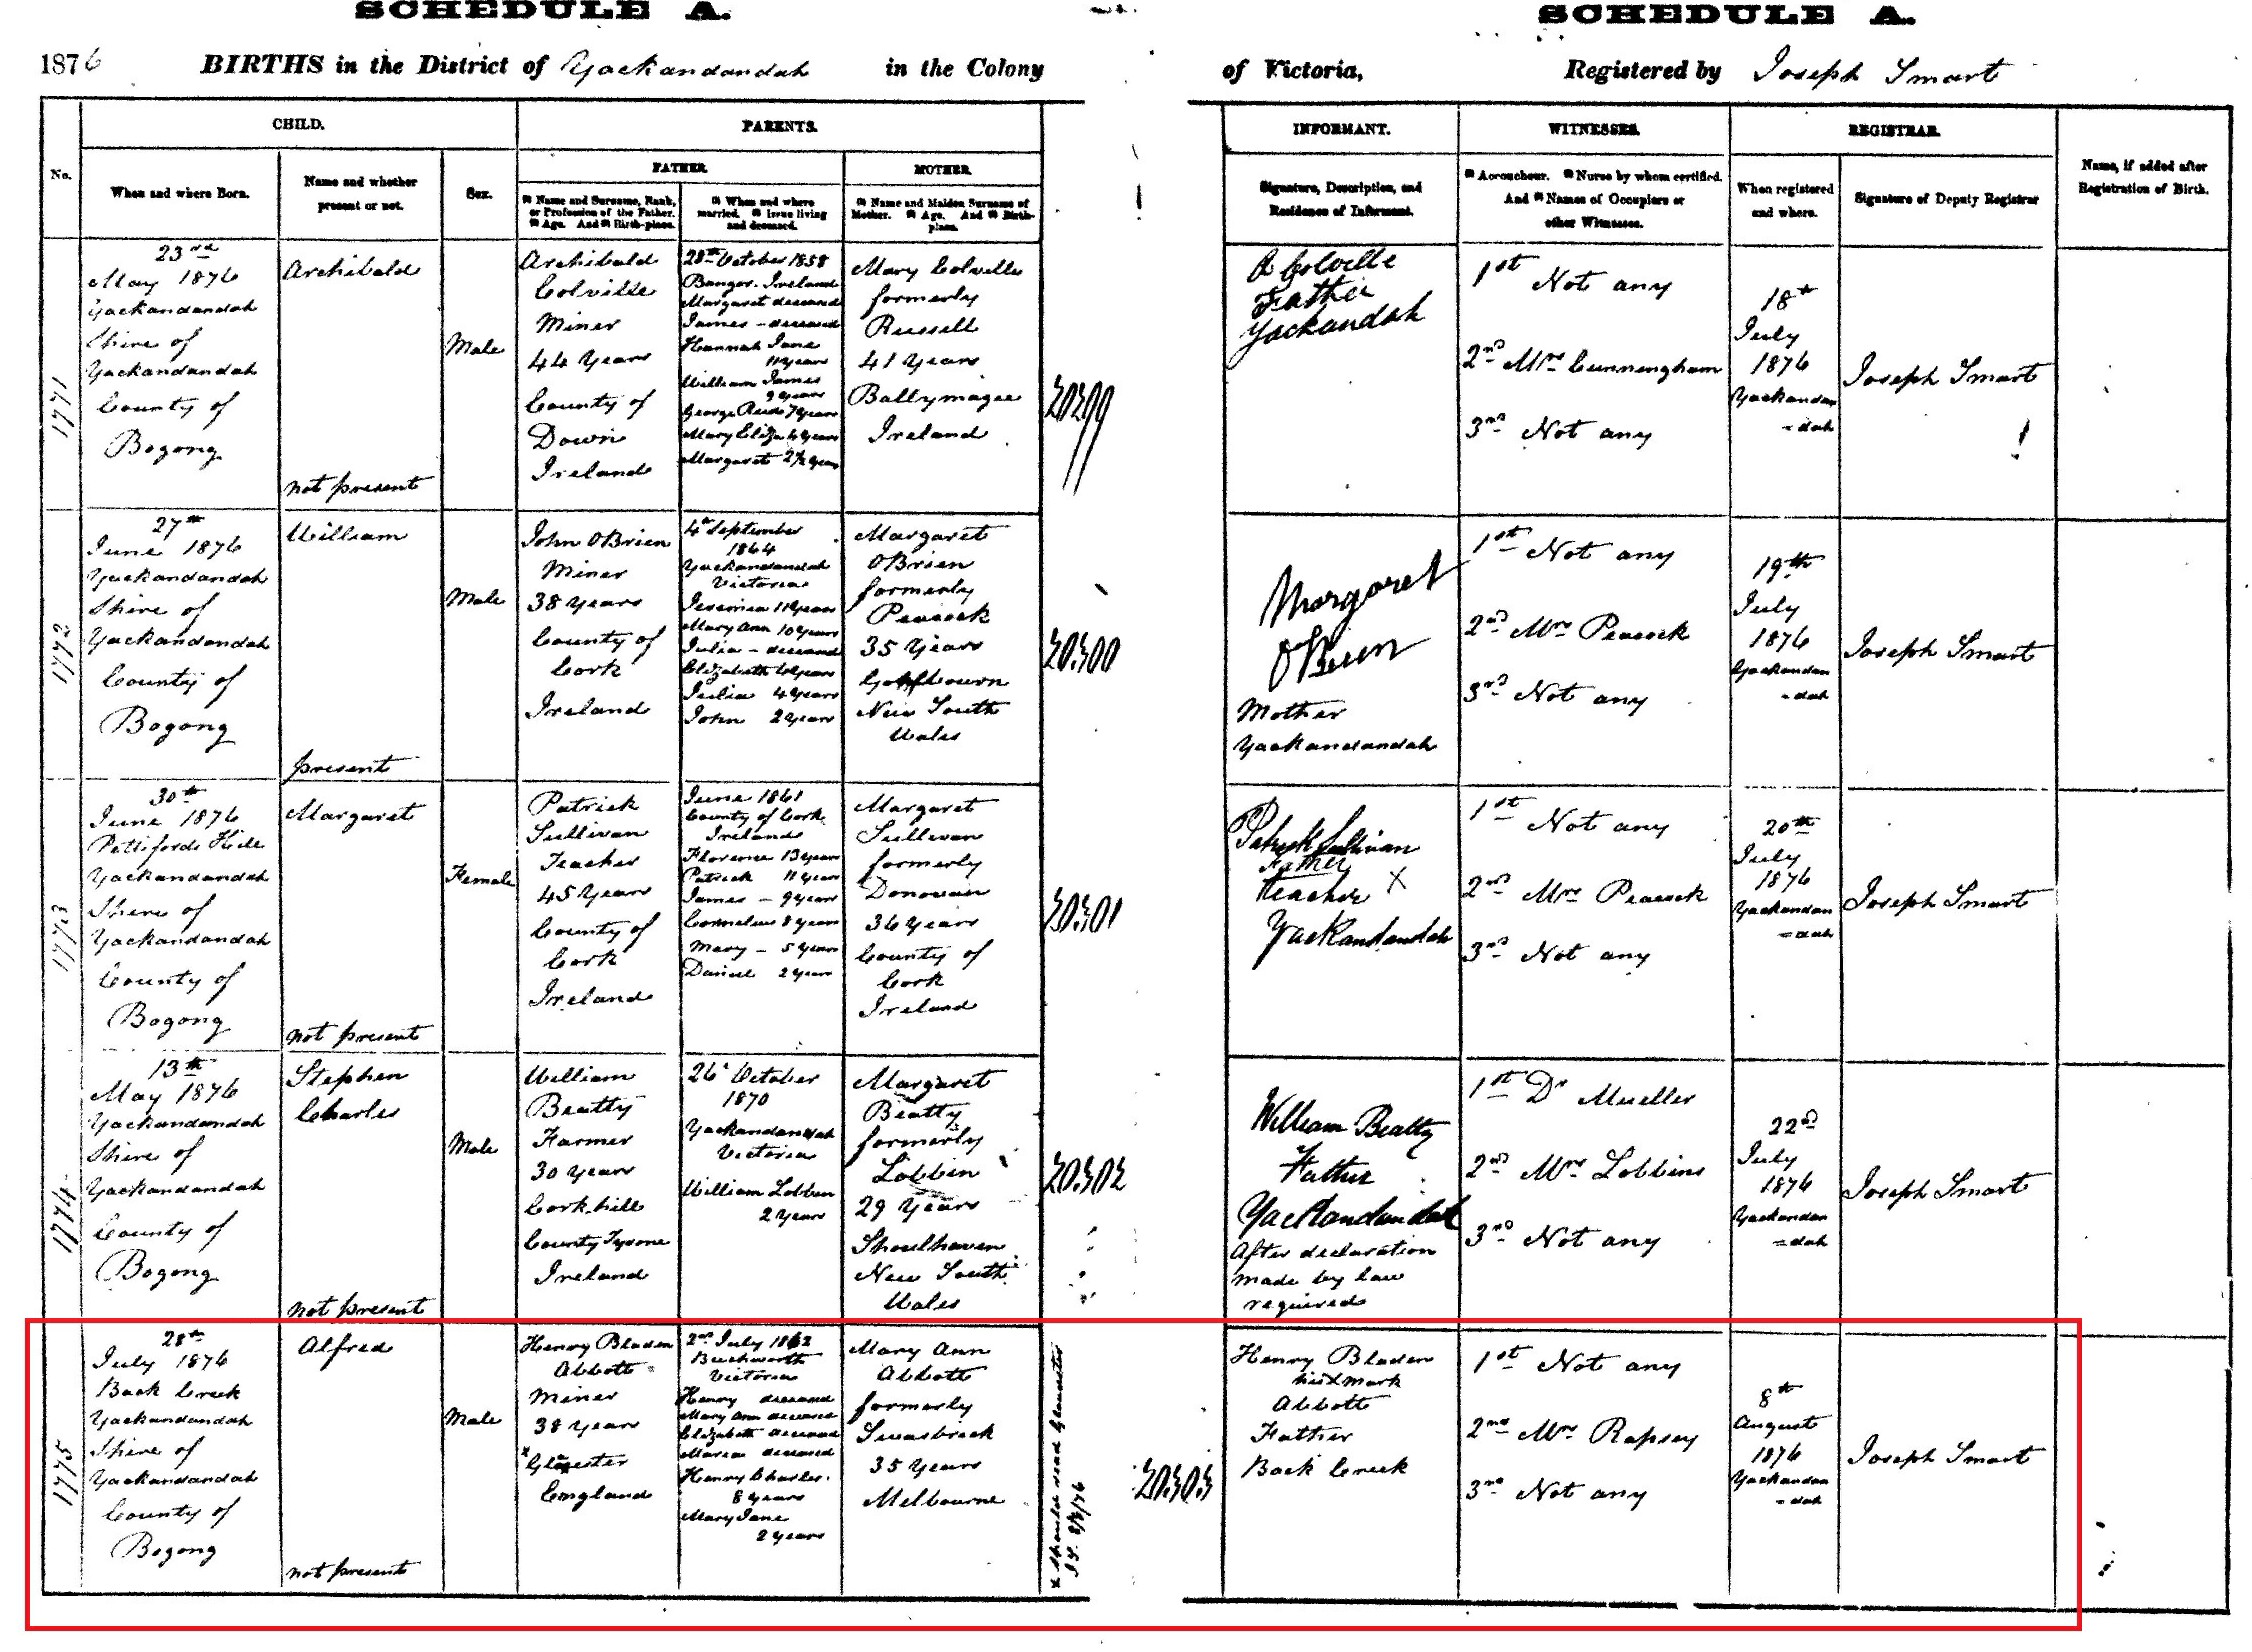 SCHEDULE A.
SCHEDULE A.
1876 BIRTHS in the District of Yackandandah in the Colony
of Victoria, Registered by Joseph Smart
No.
CHILD.
PARENTS.
When and where Born.
Name and whether
present or not.
Sex.
FATHER.
MOTHER.
(1) Name and Surname, Rank,
or Profession of the Father.
(2) Age. And (3) Birth-place.
(1) When and where
married. (2) Issue living
and deceased.
(1) Name and Maiden Surname of
Mother. (2) Age. And (3) Birth-
place.
INFORMANT.
WITNESSES.
REGISTRAR.
Signature, Description, and
Residence of Informant.
(1) Accoucheur. (2) Nurse by whom certified.
And (3) Names of Occupiers or
other Witnesses.
When registered
and where.
Signature of Deputy Registrar
Name, if added after
Registration of Birth.
1771
23rd
May 1876
Yackandandah
Shire of
Yackandandah
County of
Bogong
Archibald
not present
Male
Archibald
Colville
Miner
44 Years
County of
Down
Ireland
28th October 1858
Bangor. Ireland
Margaret deceased
James - deceased
Hannah Jane
11 years
William James
9 years
George Reid 7 years
Mary Eliza 4 years
Margaret 2½ years
Mary Colville
formerly
Russell
41 Years
Ballymagee
Ireland
20299
A Colville
Father
Yackandah
1st Not any
2nd Mrs Cunningham
3rd Not any
18th
July
1876
Yackandan
=dah
Joseph Smart
1772
27th
June 1876
Yackandandah
Shire of
Yackandandah
County of
Bogong
William
present
Male
John OBrien
Miner
38 Years
County of
Cork
Ireland
4th September
1864
Yackandandah
Victoria
11 years
Mary Ann 10 years
Julia - deceased
Elizabeth 6 years
Julia 4 years
John 2 years
Margaret
OBrien
formerly
Peacock
35 Years
New South
Wales
20300
Margaret
OBrien
Mother
Yackandandah
1st Not any
2nd Mrs Peacock
3rd Not any
19th
July
1876
Yackandan
=dah
Joseph Smart
1773
30th
June 1876
Pettifords Hill
Yackandandah
Shire of
Yackandandah
County of
Bogong
Margaret
not present
Female
Patrick
Sullivan
Teacher
45 Years
County of
Cork
Ireland
June 1861
County of Cork
Ireland
Florence 13 years
Patrick 11 years
James - 9 years
Cornelius 8 years
Mary - 5 years
Daniel 2 years
Margaret
Sullivan
formerly
Donovan
36 Years
County of
Cork
Ireland
20301
Patrick Sullivan
Father
Teacher X
Yackandandah
1st Not any
2nd Mrs Peacock
3rd Not any
20th
July
1876
Yackandan
=dah
Joseph Smart
1774
13th
May 1876
Yackandandah
Shire of
Yackandandah
County of
Bogong
Stephen
Charles
not present
Male
William
Beatty
Farmer
30 Years
Cork hill
County Tyrone
Ireland
26th October
1870
Yackandandah
Victoria
William Lobbin
2 Years
Margaret
Beatty
formerly
Lobbin
29 Years
Shoalhaven
New South
Wales
20302
William Beatty
Father
Yackandandah
After declaration
made by law
required
1st Dr Mueller
2nd Mrs Lobbins
3rd Not any
22nd
July
1876
Yackandan
=dah
Joseph Smart
1775
28th
July 1876
Back Creek
Yackandandah
Shire of
Yackandandah
County of
Bogong
Alfred
not present
Male
Henry Bladen
Abbott
Miner
38 Years
England
2nd July 1862
Beechworth
Victoria
Henry deceased
Mary Ann deceased
Elizabeth deceased
Maria deceased
Henry Charles.
8 years
Mary Jane
2 years
Mary Ann
Abbott
formerly
Swasbrick
35 Years
Melbourne
x Should read Gloucester
J.S. 8/8/76
20303
Henry Bladen
his X mark
Abbott
Father
Back Creek
1st Not any
2nd Mrs Rapsey
3rd Not any
8th
August
1876
Yackandan
=dah
Joseph Smart